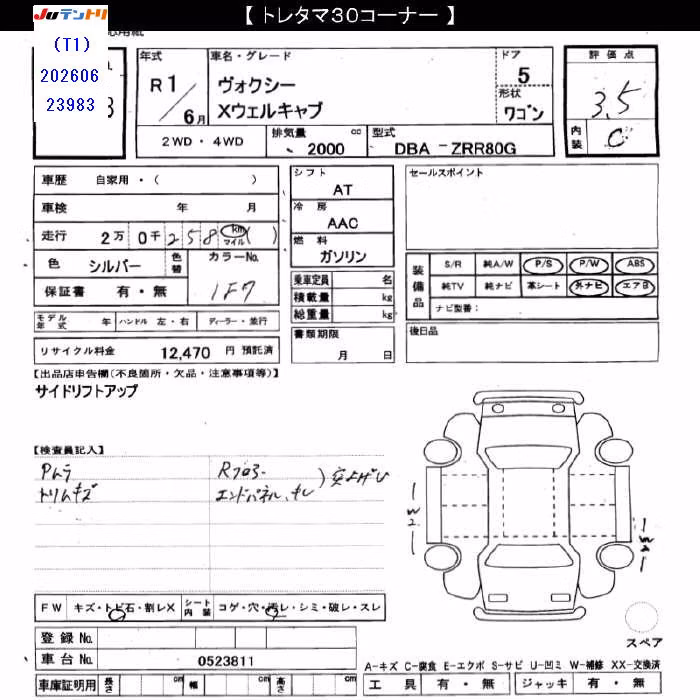 【 トレタマ30コーナー 】
JUテントリ
(T1)
202606
23983
年式
R1/6月
車名・グレード
ヴォクシー
Xウェルキャブ
ドア
5
形状
ワゴン
評価点
3.5
内装
C
2WD ・ 4WD
排気量
2000
cc
型式
DBA - ZRR80G
車歴
自家用 ・ ( )
車検
年 月
走行
2万 0千 258 km マイル ( )
色
シルバー
色替
カラーNo.
1F7
保証書
有 ・ 無
モデル年式
年
ハンドル 左・右
ディーラー・並行
リサイクル料金
12,470 円 預託済
シフト
AT
冷房
AAC
燃料
ガソリン
乗車定員 名
積載量 kg
総重量 kg
書類期限
月 日
セールスポイント
装備品
S/R 純A/W P/S P/W ABS
純TV 純ナビ 革シート 外ナビ エアB
ナビ型番:
後日品
【出品店申告欄(不良箇所・欠品・注意事項等)】
サイドリフトアップ
【検査員記入】
Pムラ
トリムキズ
Rフロア
エンドパネル、
突上げU
W2
W2
FW
キズ・トビ石・割レX
シート内装
コゲ・穴・汚レ・シミ・破レ・スレ
登録No.
車台No.
0523811
車庫証明用
長さ cm 幅 cm 高さ cm
スペア
A-キズ C-腐食 E-エクボ S-サビ U-凹ミ W-補修 XX-交換済
工具 有 ・ 無 ジャッキ 有 ・ 無